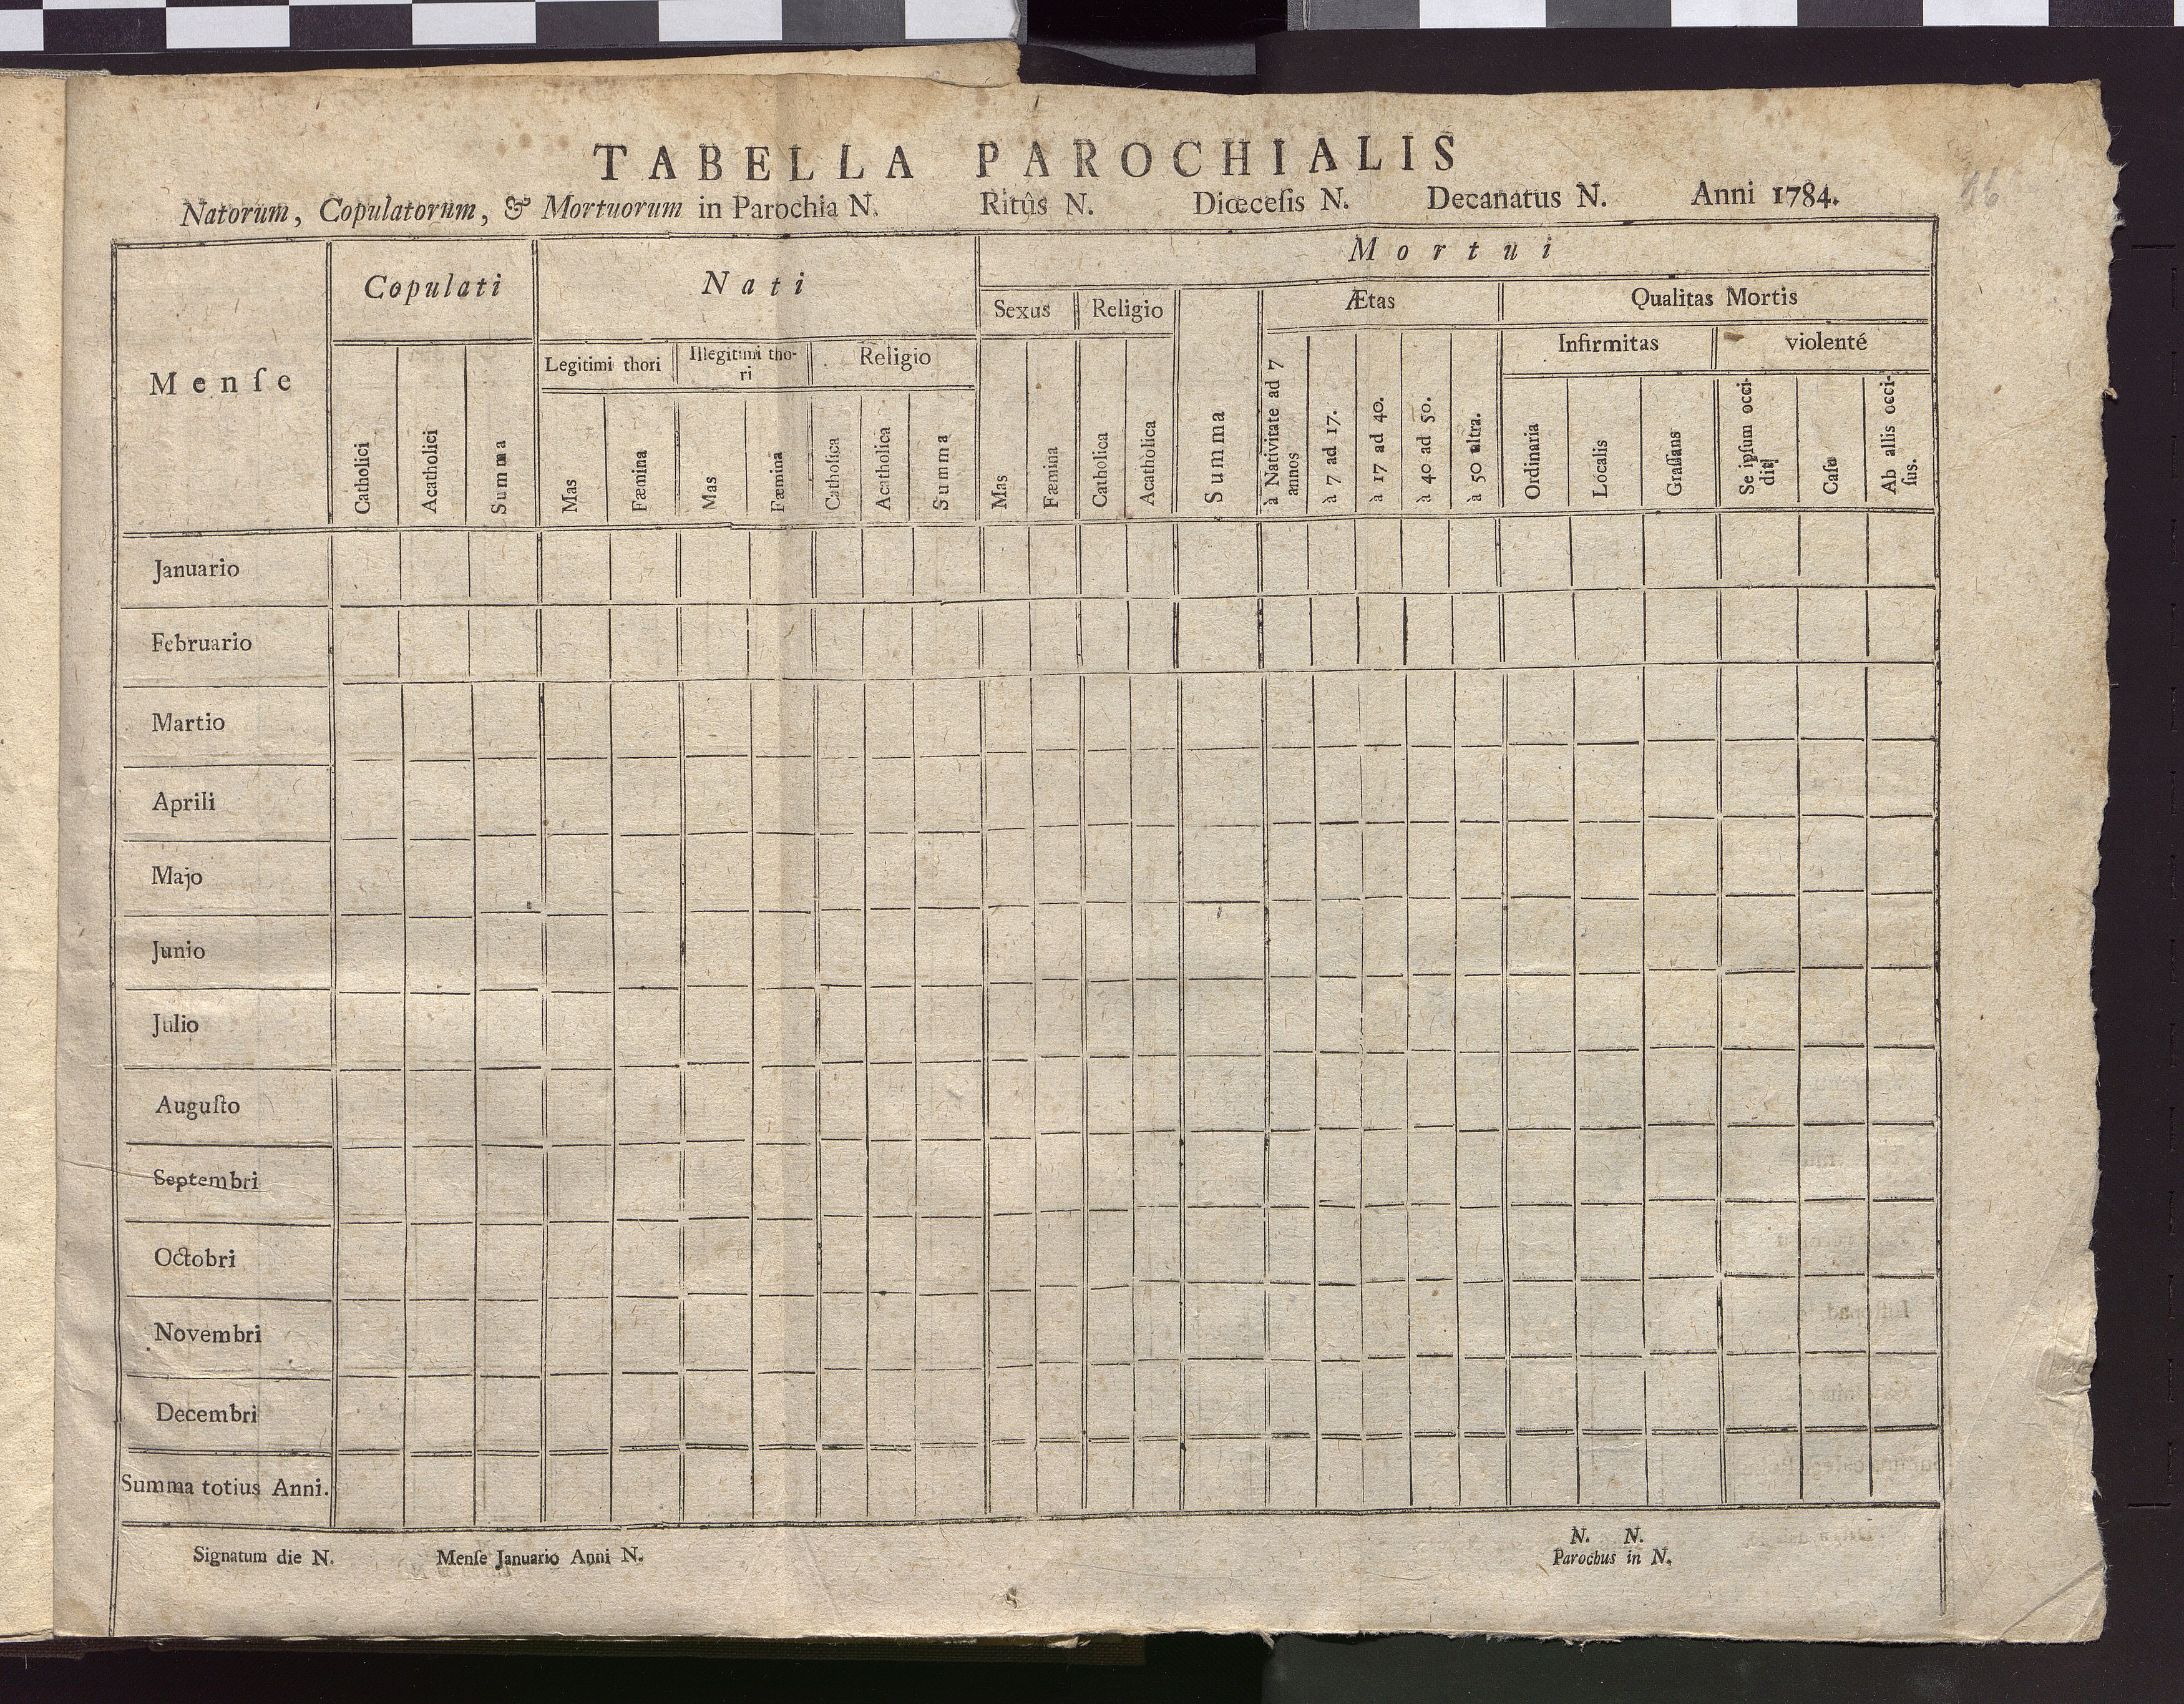 TABELLA PAROCHIALIS
Natorum, Copulatorum, & Mortuorum in Parochia N. Ritûs N. Diœceſis N. Decanatus N. Anni 1784.
46
Menſe
Copulati
Nati
Mortui
Legitimi thori
Illegitimi tho-
ri
Religio
Sexus
Religio
Summa
Ætas
Qualitas Mortis
Infirmitas
violenté
Catholici
Acatholici
Summa
Mas
Fæmina
Mas
Fæmina
Catholica
Acatholica
Summa
Mas
Fæmina
Catholica
Acatholica
à Nativitate ad 7
annos
à 7 ad 17.
à 17 ad 40.
à 40 ad 50.
à 50 ultra.
Ordinaria
Localis
Graſſans
Se ipſum occi-
dit
Caſu
Ab allis occi-
ſus.
Januario
Februario
Martio
Aprili
Majo
Junio
Julio
Auguſto
Septembri
Octobri
Novembri
Decembri
Summa totius Anni.
Signatum die N. Menſe Januario Anni N.
N. N.
Parochus in N.